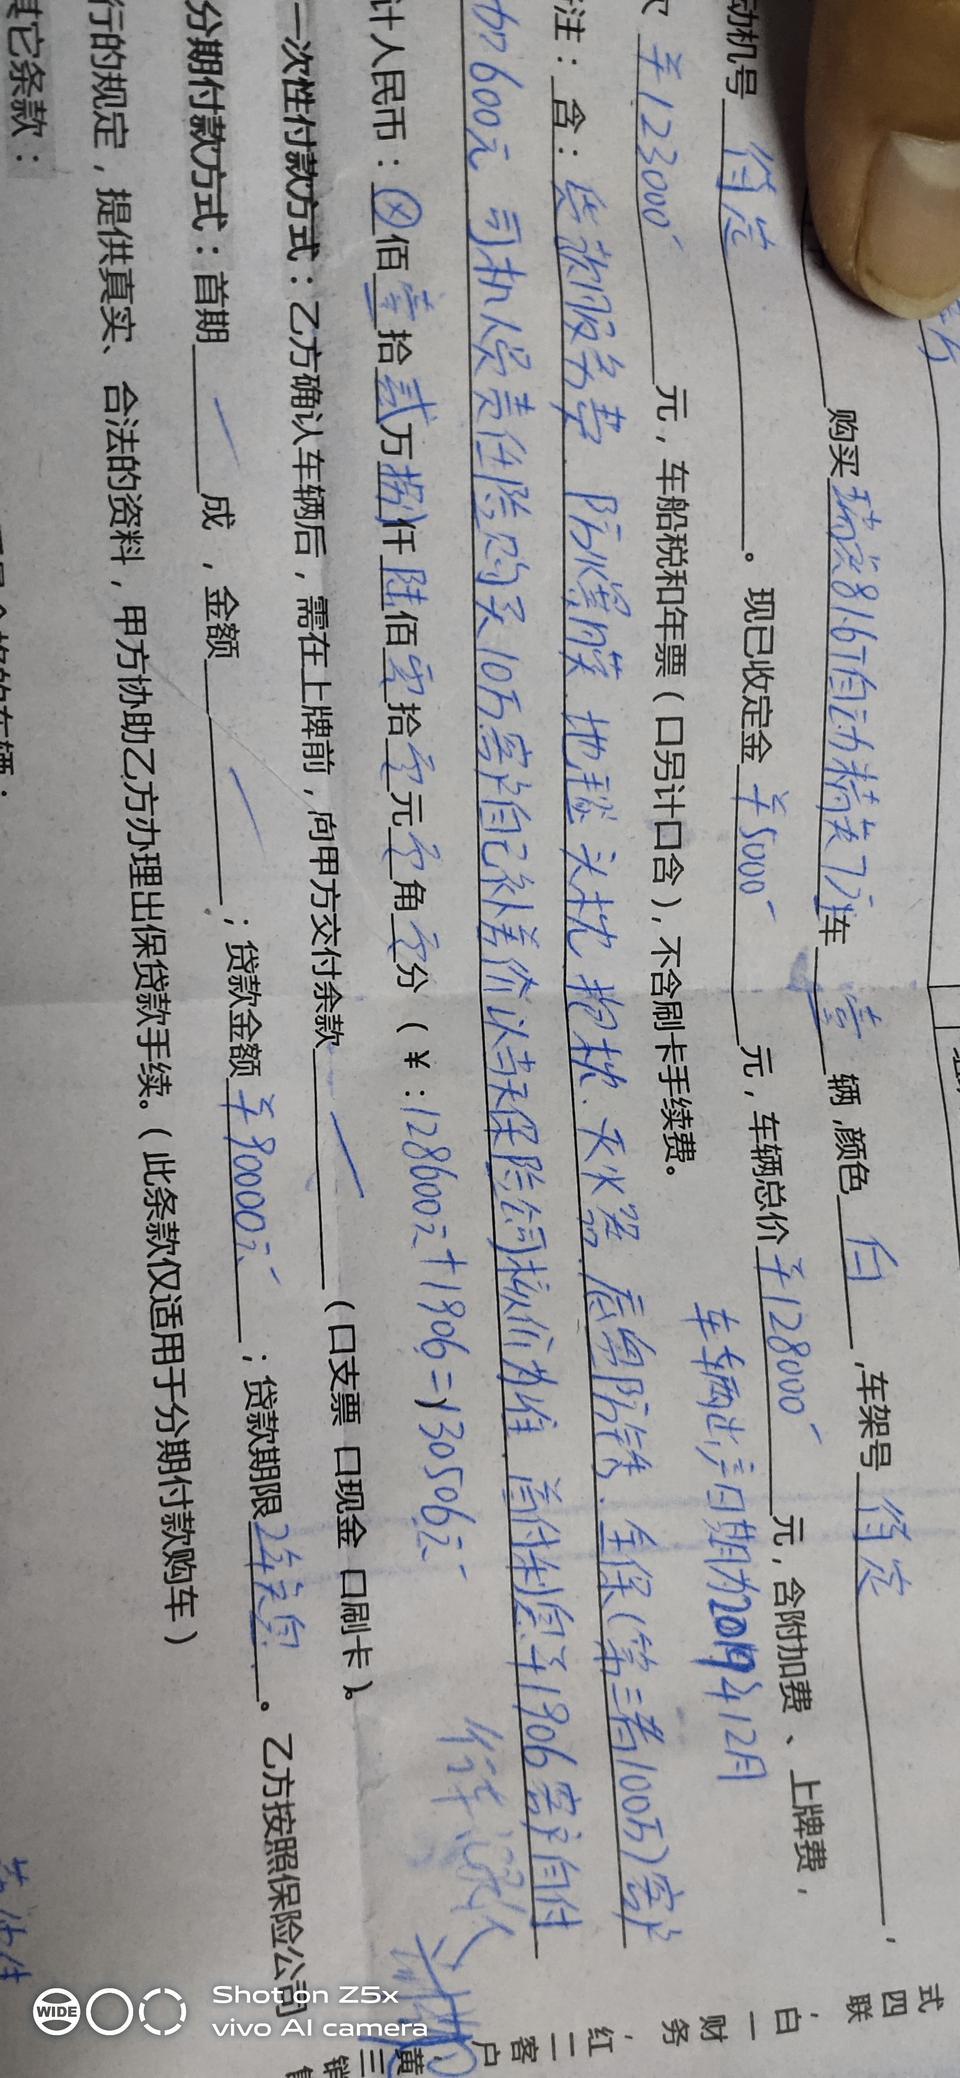 购买瑞虎8 1.6T自动精英7座车 壹 辆,颜色 白 ,车架号 待定 ,
动机号 待定 。现已收定金 ￥5000 元,车辆总价 ￥128000 元,含附加费、上牌费,
车辆出厂日期为2019年12月
￥123000 元,车船税和年票(口另计口含),不含刷卡手续费。
注:含: 贷款服务费、防爆膜、地毯、头枕抱枕、灭火器、尾箱防锈、全保(第三者100万)客户
加600元 司机人员责任险购买10万客户自己补差价以与保险公司核价为准 首付利息￥1906客户自付
计人民币:⊗佰壹拾贰万捌仟陆佰零拾零元零角零分(¥:128600元+1906=130506元
一次性付款方式:乙方确认车辆后,需在上牌前,向甲方交付余款 (口支票 口现金 口刷卡)。
分期付款方式:首期 成,金额 ;贷款金额 ￥80000元 ;贷款期限 2年免息 。乙方按照保险公司
行的规定,提供真实、合法的资料,甲方协助乙方办理出保贷款手续。(此条款仅适用于分期付款购车)
其它条款:
式四联,白一财务,红二客户,黄三销
WIDE
Shot on Z5x
vivo AI camera